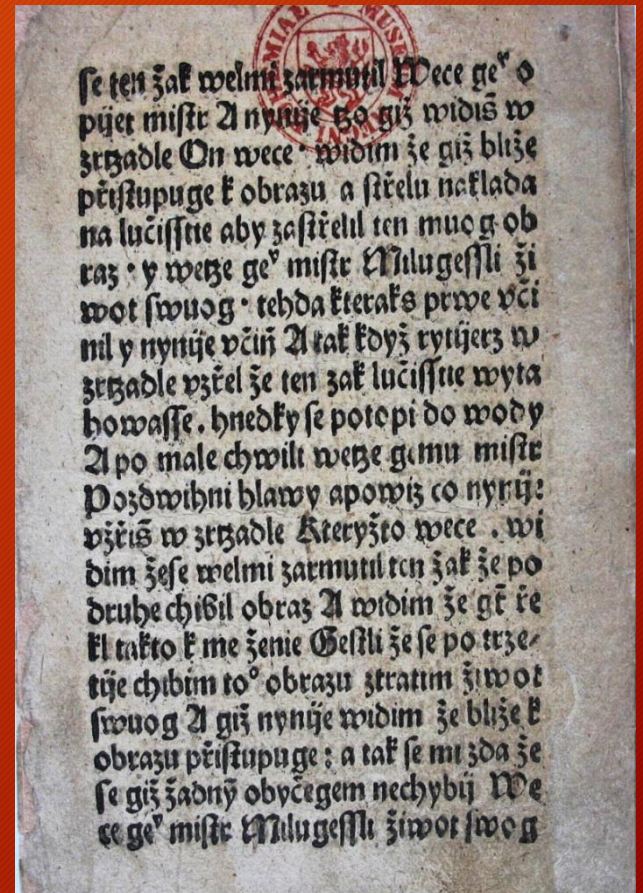 se ten žak welmi zarmutil Wece geͮ o
pijet mistr A nynije tzo giž widiš w
zrtzadle On wece · widim že giž bliže
přistupuge k obrazu a střelu naklada
na lučisstie aby zastřelil ten muog ob
raz · y wetze geͮ mistr Milugessli ži
wot swuog · tehda kteraks prwe vči
nil y nynije včiň A tak když rytijerz w
zrtzadle vzřel že ten zak lučisstie wyta
howasse . hnedky se potopi do wody
A po male chwili wetze gemu mistr
Pozdwihni hlawy apowiz co nynije
vzřiš w zrtzadle Kteryžto wece . wi
dim žese welmi zarmutil ten žak že po
druhe chibil obraz A widim že gt̄ ře
kl takto k me ženie Gestli že se po trze⸗
tije chibim toº obrazu ztratim žiwot
swuog A giž nynije widim že bliže k
obrazu přistupuge : a tak se mi zda že
se giž žadnỹ obyčegem nechybij We
ce geͮ mistr Milugessli žiwot swog
MUSE